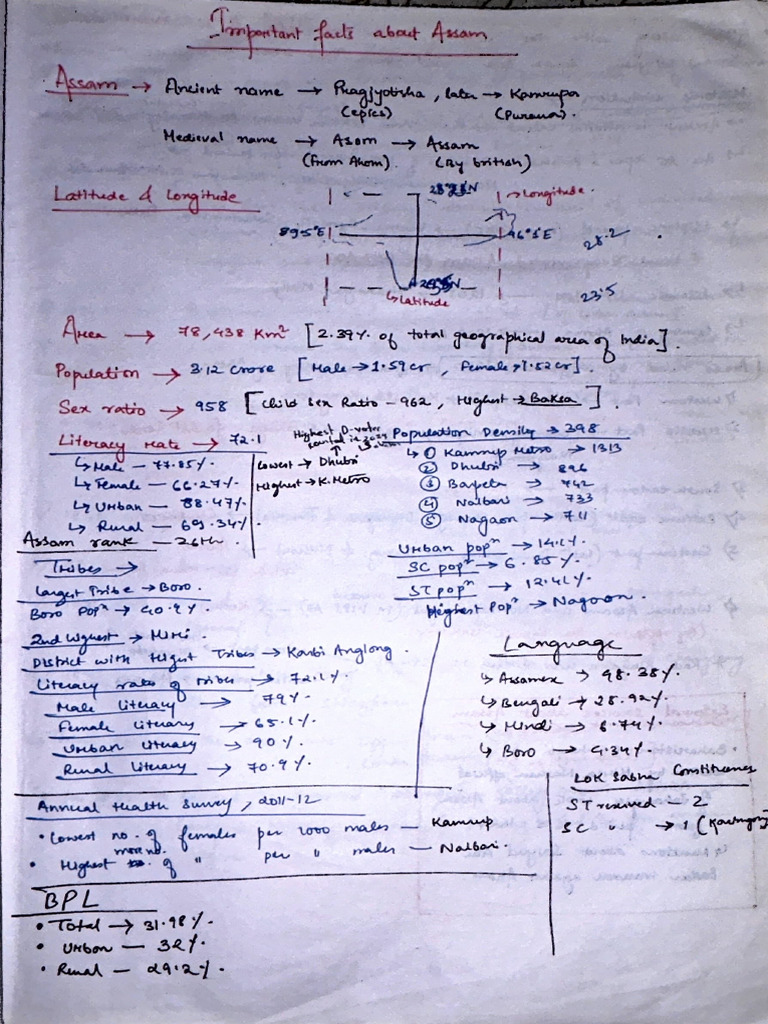 Important facts about Assam
Assam → Ancient name → Pragjyotisha, later → Kamrupa
(epics) (Purana).
Medieval name → Asom → Assam
(From Ahom). (By british)
Latitude & Longitude
→ Longitude.
89.5°E 96°1'E
28.2
23.5
↳ Latitude
Area → 78,438 Km² [2.39% of total geographical area of India].
Population → 3.12 crore [Male → 1.59cr, Female → 1.52cr].
Sex ratio → 958 [child Sex Ratio - 962, Highest → Baksa].
Literacy rate → 72.1
↳ Male — 77.85%.
↳ Female — 66.27%.
↳ Urban — 88.47%.
↳ Rural — 69.34%.
Assam rank — 26th.
Highest D-voter
Lowest → Dhubri
Highest → K. Metro
Population Density → 398
↳ ① Kamrup Metro → 1313
② Dhubri → 896
③ Barpeta → 742
④ Nalbari → 733
⑤ Nagaon → 711
Urban popⁿ → 14.1%
SC popⁿ → 6.85%
ST popⁿ → 12.41%
Highest Popⁿ → Nagaon.
Tribes →
Largest Tribe → Boro.
Boro Popⁿ → 40.9%
2nd highest → Miri.
District with Highest Tribes → Karbi Anglong.
Literacy rate of tribes → 72.1%.
Male literacy → 79%
Female literacy → 65.1%.
Urban literacy → 90%
Rural literacy → 70.9%
Language
↳ Assamese → 48.38%.
↳ Bengali → 28.92%.
↳ Hindi → 6.74%.
↳ Boro → 4.34%.
Lok Sabha Constituencies
ST reserved — 2
SC " → 1 (Karimganj)
Annual Health Survey, 2011-12
• Lowest no. of females per 1000 males — Kamrup
• Highest no. of " per " males — Nalbari.
BPL
• Total → 31.98%.
• Urban — 32%.
• Rural — 29.2%.